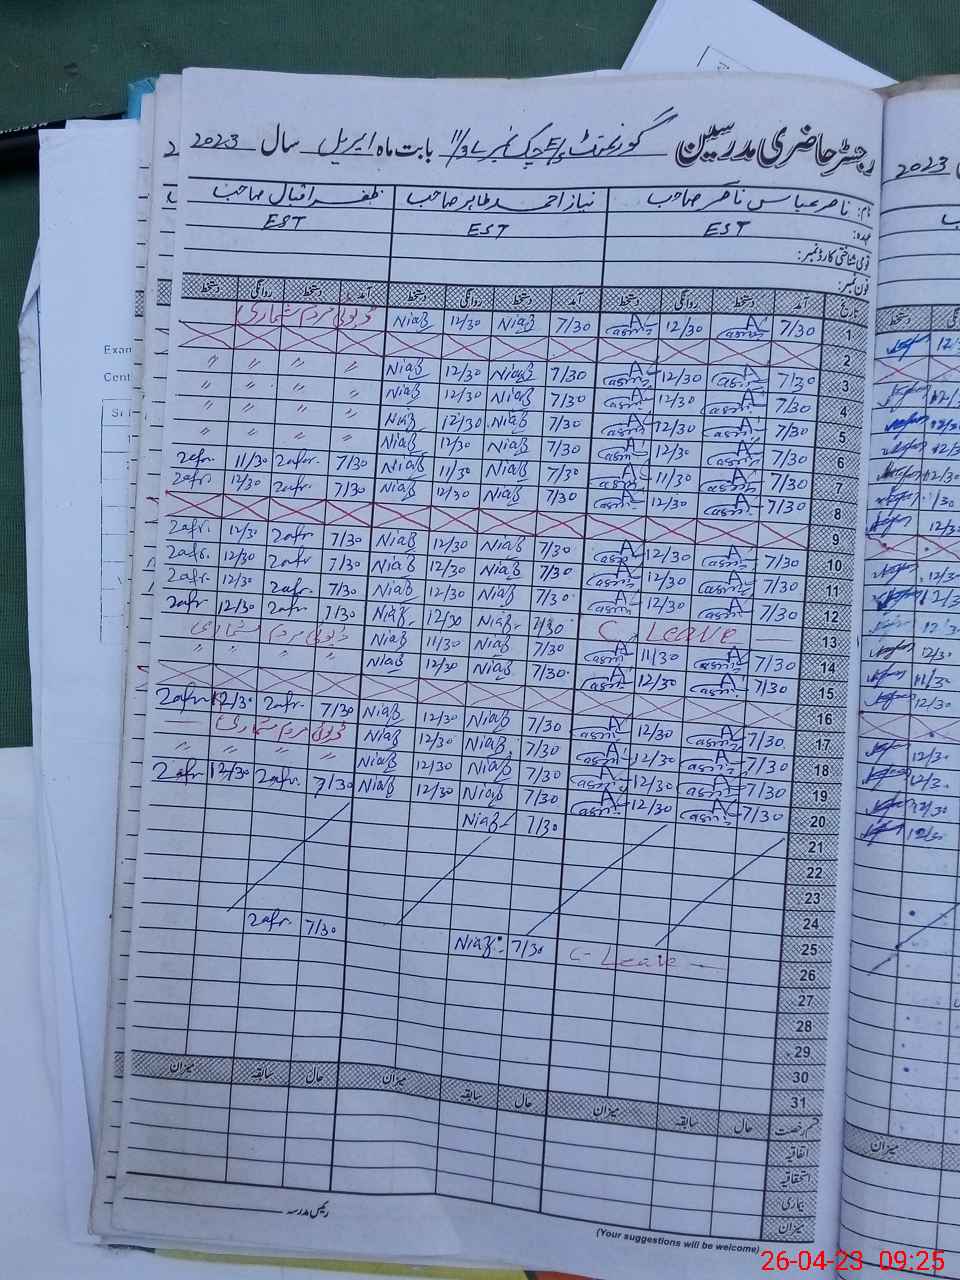 رجسٹر حاضری مدرسین گورنمنٹ چک نمبر بابت ماہ اپریل سال 2023
نام: ناصر عباس ناصر صاحب نیاز احمد طاہر صاحب ظفر اقبال صاحب
عہدہ: EST EST EST
قومی شناختی کارڈ نمبر:
فون نمبر:
تاریخ آمد دستخط روانگی دستخط آمد دستخط روانگی دستخط آمد دستخط روانگی دستخط
1 7/30 12/30 7/30 Niaz 12/30 Niaz ڈیوٹی مردم شماری
2
3 7/30 12/30 7/30 Niaz 12/30 Niaz " " " "
4 7/30 12/30 7/30 Niaz 12/30 Niaz " " " "
5 7/30 12/30 7/30 Niaz 12/30 Niaz " " " "
6 7/30 12/30 7/30 Niaz 12/30 Niaz " " " "
7 7/30 11/30 7/30 Niaz 11/30 Niaz 7/30 Zafr. 11/30 Zafr.
8 7/30 12/30 7/30 Niaz 12/30 Niaz 7/30 Zafr. 12/30 Zafr
9
10 7/30 12/30 7/30 Niaz 12/30 Niaz 7/30 Zafr 12/30 Zafr.
11 7/30 12/30 7/30 Niaz 12/30 Niaz 7/30 Zafr 12/30 Zafr.
12 7/30 12/30 7/30 Niaz 12/30 Niaz 7/30 Zafr 12/30 Zafr.
13 C, Leave 7/30 Niaz 12/30 Niaz 7/30 Zafr 12/30 Zafr
14 7/30 11/30 7/30 Niaz 11/30 Niaz ڈیوٹی مردم شماری
15 7/30 12/30 7/30 Niaz 12/30 Niaz " " " "
16
17 7/30 12/30 7/30 Niaz 12/30 Niaz 7/30 Zafr. 12/30 Zafr
18 7/30 12/30 7/30 Niaz 12/30 Niaz ڈیوٹی مردم شماری
19 7/30 12/30 7/30 Niaz 12/30 Niaz " " " "
20 7/30 12/30 7/30 Niaz 12/30 Niaz 7/30 Zafr. 12/30 Zafr
21 7/30 Niaz
22
23
24
25 7/30 Zafr.
26 C- Leave 7/30 Niaz
27
28
29
30
31
قسم رخصت حال سابقہ میزان حال سابقہ میزان حال سابقہ میزان
اتفاقیہ
استحقاقیہ
بیماری
میزان
رئیس مدرسہ
(Your suggestions will be welcome)
2023
دستخط
میزان
Exan
Cent
26-04-23 09:25